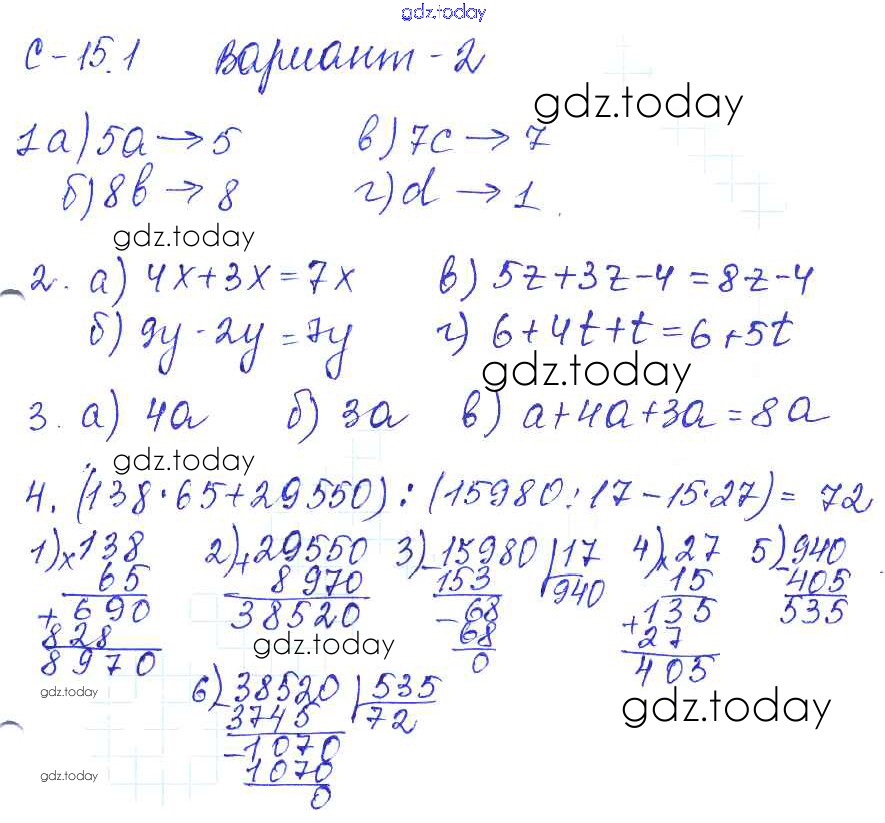 gdz.today
С-15.1 Вариант-2
gdz.today
1 а) 5a → 5 в) 7c → 7
б) 8b → 8 г) d → 1
gdz.today
2. а) 4x+3x=7x в) 5z+3z-4=8z-4
б) 9y-2y=7y г) 6+4t+t=6+5t
gdz.today
3. а) 4a б) 3a в) a+4a+3a=8a
gdz.today
4. (138·65+29550):(15980:17-15·27)=72
1) ×138 2) +29550 3) -15980 |17 4) ×27 5) -940
65 8970 153 940 15 405
+690 38520 -68 +135 535
828 68 27
8970 0 405
gdz.today
6) -38520 |535
3745 72
-1070
1070
0
gdz.today
gdz.today
gdz.today